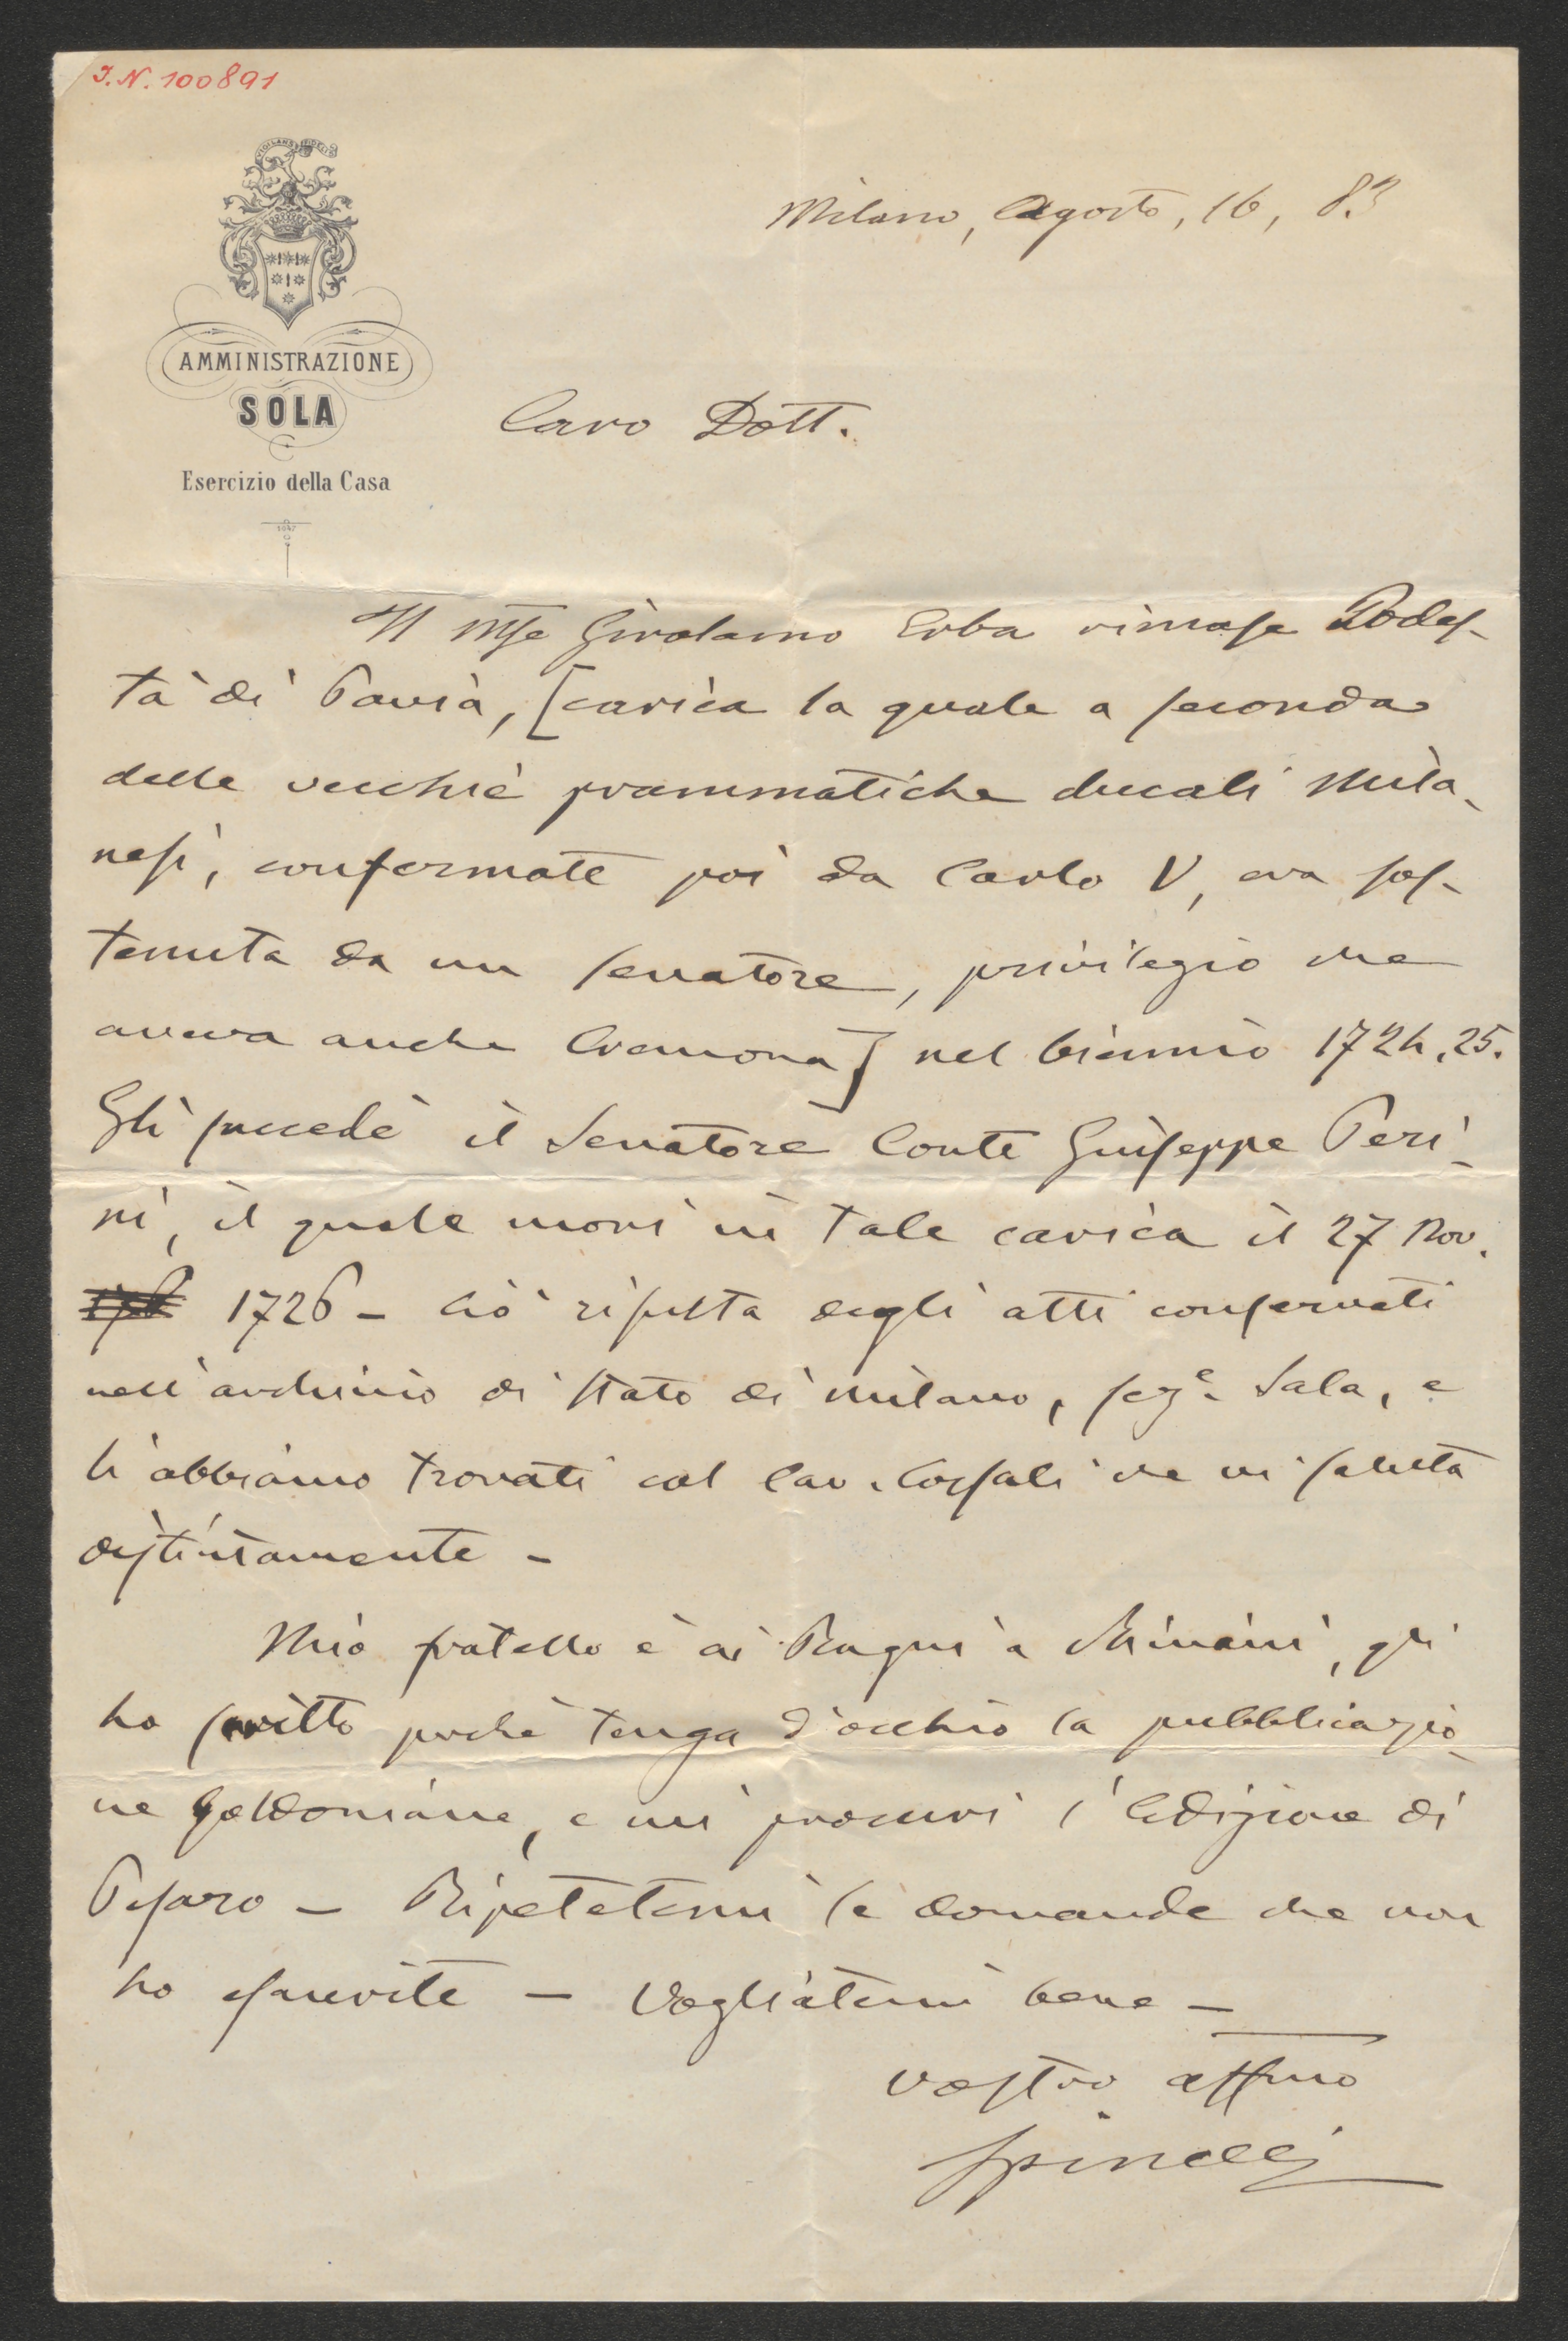 J.N. 100891
VIGILANS FIDELIS
Milano, Agosto, 16, 83
AMMINISTRAZIONE
SOLA
Esercizio della Casa
Caro Dott.
Il Mse Girolamo Erba rimase Podes-
tà di Pavia, [carica la quale a seconda
delle vecchie prammatiche ducali Mila-
nesi, confermate poi da Carlo V, era sos-
tenuta da un senatore, privilegio che
aveva anche Cremona] nel biennio 1724.25.
Gli succedè il Senatore Conte Giuseppe Peri-
ni, il quale morì in tale carica il 27 Nov.
1726 - Ciò risulta dagli atti conservati
nell'archivio di Stato di Milano, sez.e Sala, e
li abbiamo trovati col Cav. Cossali che vi saluta
distintamente -
Mio fratello è ai Bagni a Rimini, gli
ho scritto perchè tenga d'occhio la pubblicazio-
ne goldoniane, e mi procuri l'Edizione di
Pesaro - Ripetetemi le domande che non
ho esaurite - Vogliatemi bene -
Vostro affmo
Spinelli